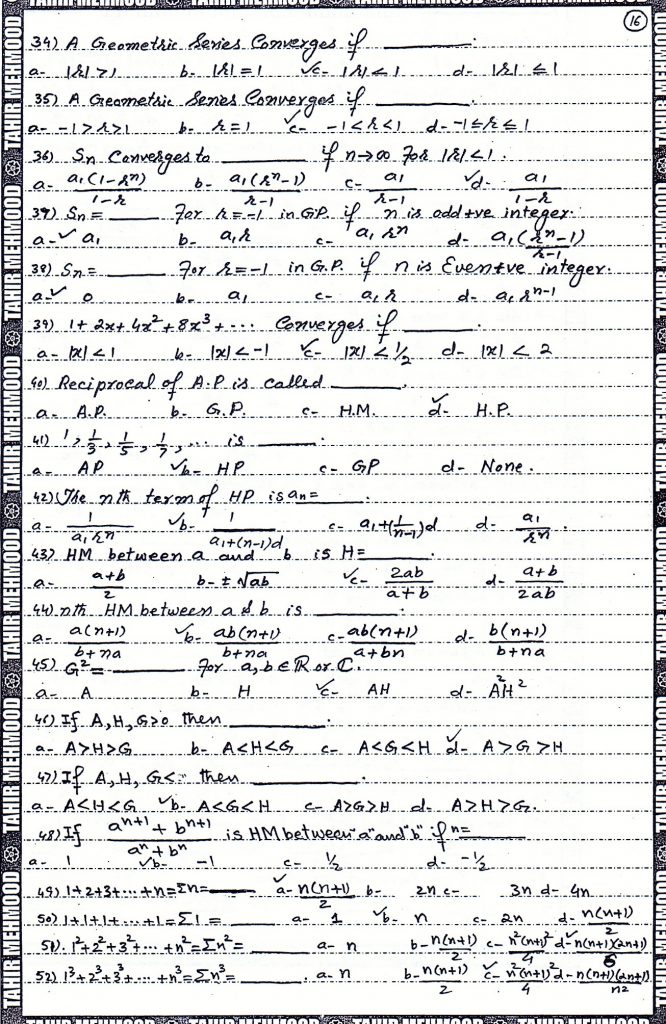 16
34) A Geometric Series Converges if ______.
a- |r| > 1 b- |r| = 1 ✓c- |r| < 1 d- |r| ≤ 1
35) A Geometric Series Converges if ______.
a- -1 > r > 1 b- r = 1 ✓c- -1 < r < 1 d- -1 ≤ r ≤ 1
36) Sn Converges to ______ if n→∞ For |r| < 1.
a- a₁(1-rⁿ)/1-r b- a₁(rⁿ-1)/r-1 c- a₁/r-1 ✓d- a₁/1-r
37) Sn = ______ For r = -1 in GP. if n is odd +ve integer.
a-✓ a₁ b- a₁r c- a₁rⁿ d- a₁(rⁿ-1)/r-1
38) Sn = ______ For r = -1 in G.P. if n is Even +ve integer.
a-✓ 0 b- a₁ c- a₁r d- a₁rⁿ⁻¹
39) 1 + 2x + 4x² + 8x³ + ... Converges if ______.
a- |x| < 1 b- |x| < -1 ✓c- |x| < 1/2 d- |x| < 2
40) Reciprocal of A.P is called ______.
a- A.P. b- G.P. c- H.M. ✓d- H.P.
41) 1, 1/3, 1/5, 1/7, ... is ______.
a- AP ✓b- HP c- GP d- None.
42) The nth term of HP is an = ______.
a- 1/a₁rⁿ ✓b- 1/a₁+(n-1)d c- a₁+(1/n-1)d d- a₁/rⁿ.
43) HM between a and b is H = ______.
a- a+b/2 b- ±√ab ✓c- 2ab/a+b d- a+b/2ab
44) nth HM between a & b is ______.
a- a(n+1)/b+na ✓b- ab(n+1)/b+na c- ab(n+1)/a+bn d- b(n+1)/b+na
45) G² = ______ For a, b ∈ R or C.
a- A b- H ✓c- AH d- A²H²
46) If A, H, G > 0 then ______.
a- A>H>G b- A<H<G c- A<G<H ✓d- A>G>H
47) If A, H, G < then ______.
a- A<H<G ✓b- A<G<H c- A>G>H d- A>H>G.
48) If aⁿ⁺¹ + bⁿ⁺¹/aⁿ + bⁿ is HM between "a" and "b" if n = ______
a- 1 ✓b- -1 c- 1/2 d- -1/2
49) 1+2+3+...+n = Σn = ______ ✓a- n(n+1)/2 b- 2n c- 3n d- 4n
50) 1+1+1+...+1 = Σ1 = ______ a- 1 ✓b- n c- 2n d- n(n+1)/2
51) 1²+2²+3²+...+n² = Σn² = ______ a- n b- n(n+1)/2 c- n²(n+1)²/4 ✓d- n(n+1)(2n+1)/6
52) 1³+2³+3³+...+n³ = Σn³ = ______. a- n b- n(n+1)/2 ✓c- n²(n+1)²/4 d- n(n+1)(2n+1)/n2
TAHIR MEHMOOD